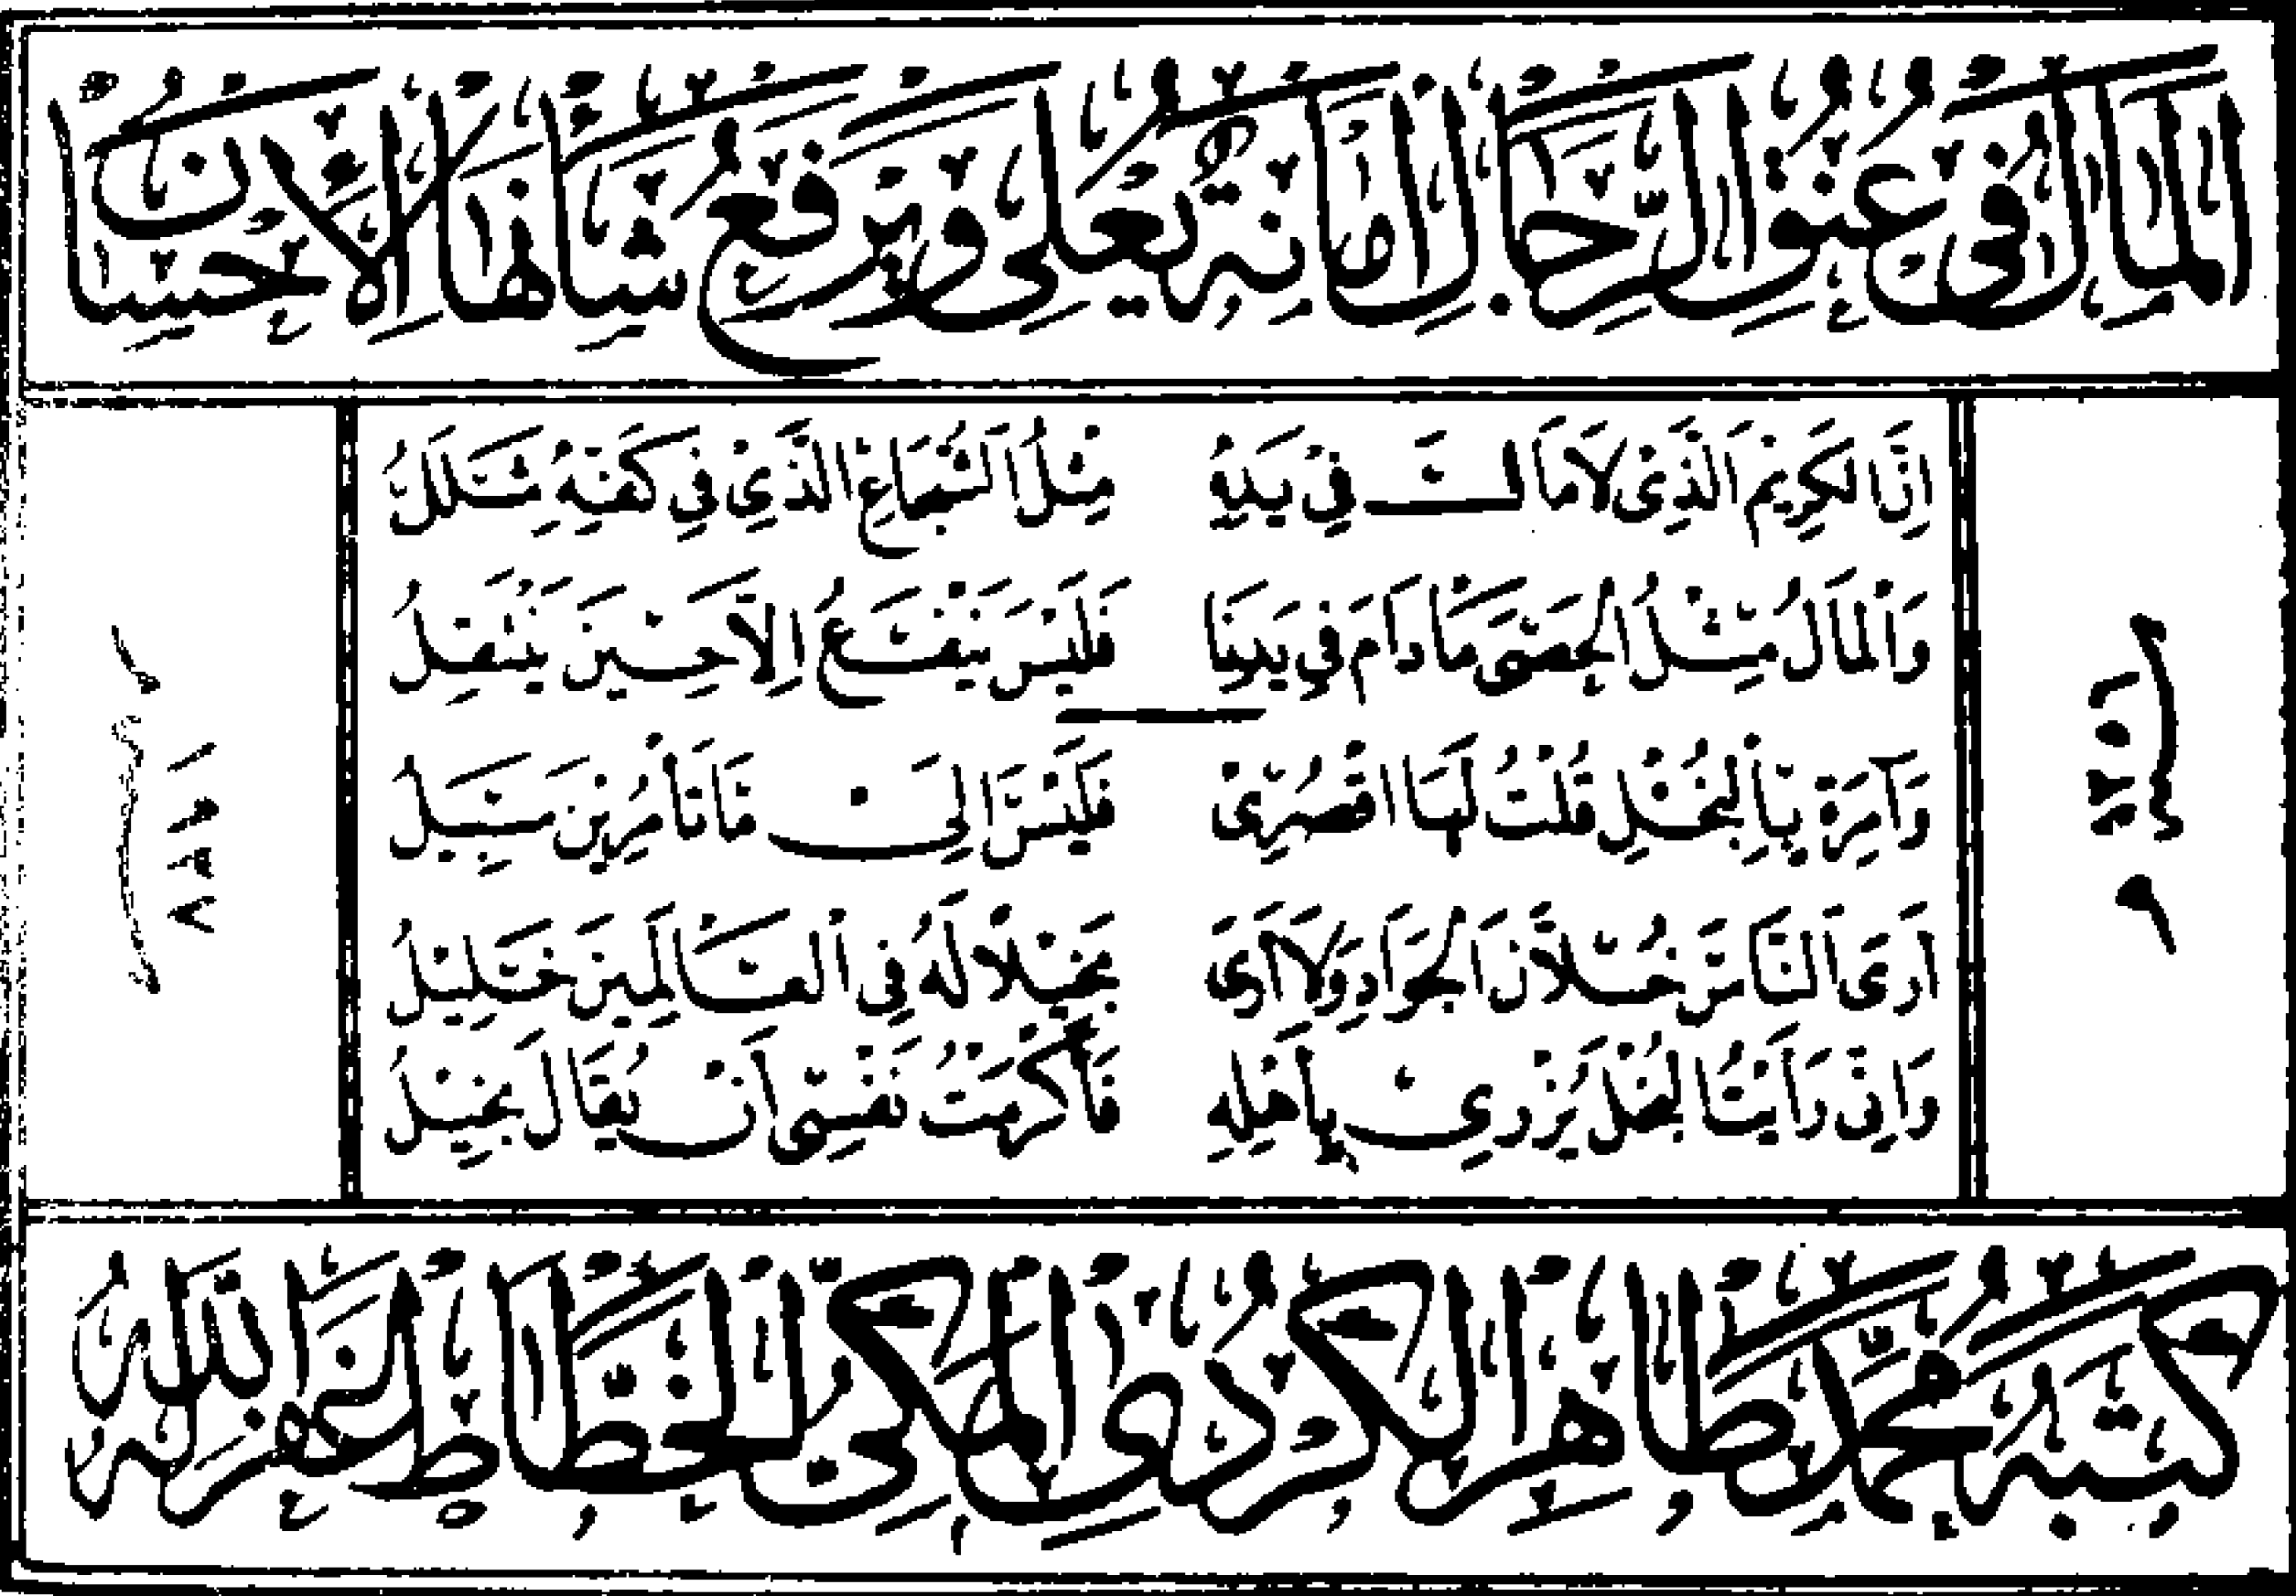 اَلْمَالُ فِي عُنُقِ الرِّجَالِ اَمَانَةٌ يُعْلِي وَيَرْفَعُ شَانَهَا الْاِحْسَانُ
اِنَّ الْكَرِيْمَ الَّذِيْ لَا مَالَ فِيْ يَدِهِ مِثْلُ الشُّجَاعِ الَّذِيْ فِي كَفِّهِ شَلَلُ
وَالْمَالُ مِثْلُ الْحَصَى مَا دَامَ فِي يَدِنَا فَلَيْسَ يَنْفَعُ اِلَّا حِيْنَ يَنْتَقِلُ
وَآمِرَةٍ بِالْبُخْلِ قُلْتُ لَهَا اقْصُرِيْ فَلَيْسَ اِلَى مَا تَأْمُرِيْنَ سَبِيْلُ
اَرَى النَّاسَ خُلَّانَ الْجَوَادِ وَلَا اَرَى بَخِيْلًا لَهُ فِي الْعَالَمِيْنَ خَلِيْلُ
وَاِنِّي رَاَيْتُ الْبُخْلَ يُزْرِيْ بِاَهْلِهِ فَاَكْرَمْتُ نَفْسِي اَنْ يُقَالَ بَخِيْلُ
كَتَبَهُ مُحَمَّد طَاهِر الْكُرْدِي الْمَكِّي الْخَطَّاط غَفَرَ اللّٰهُ لَهُ